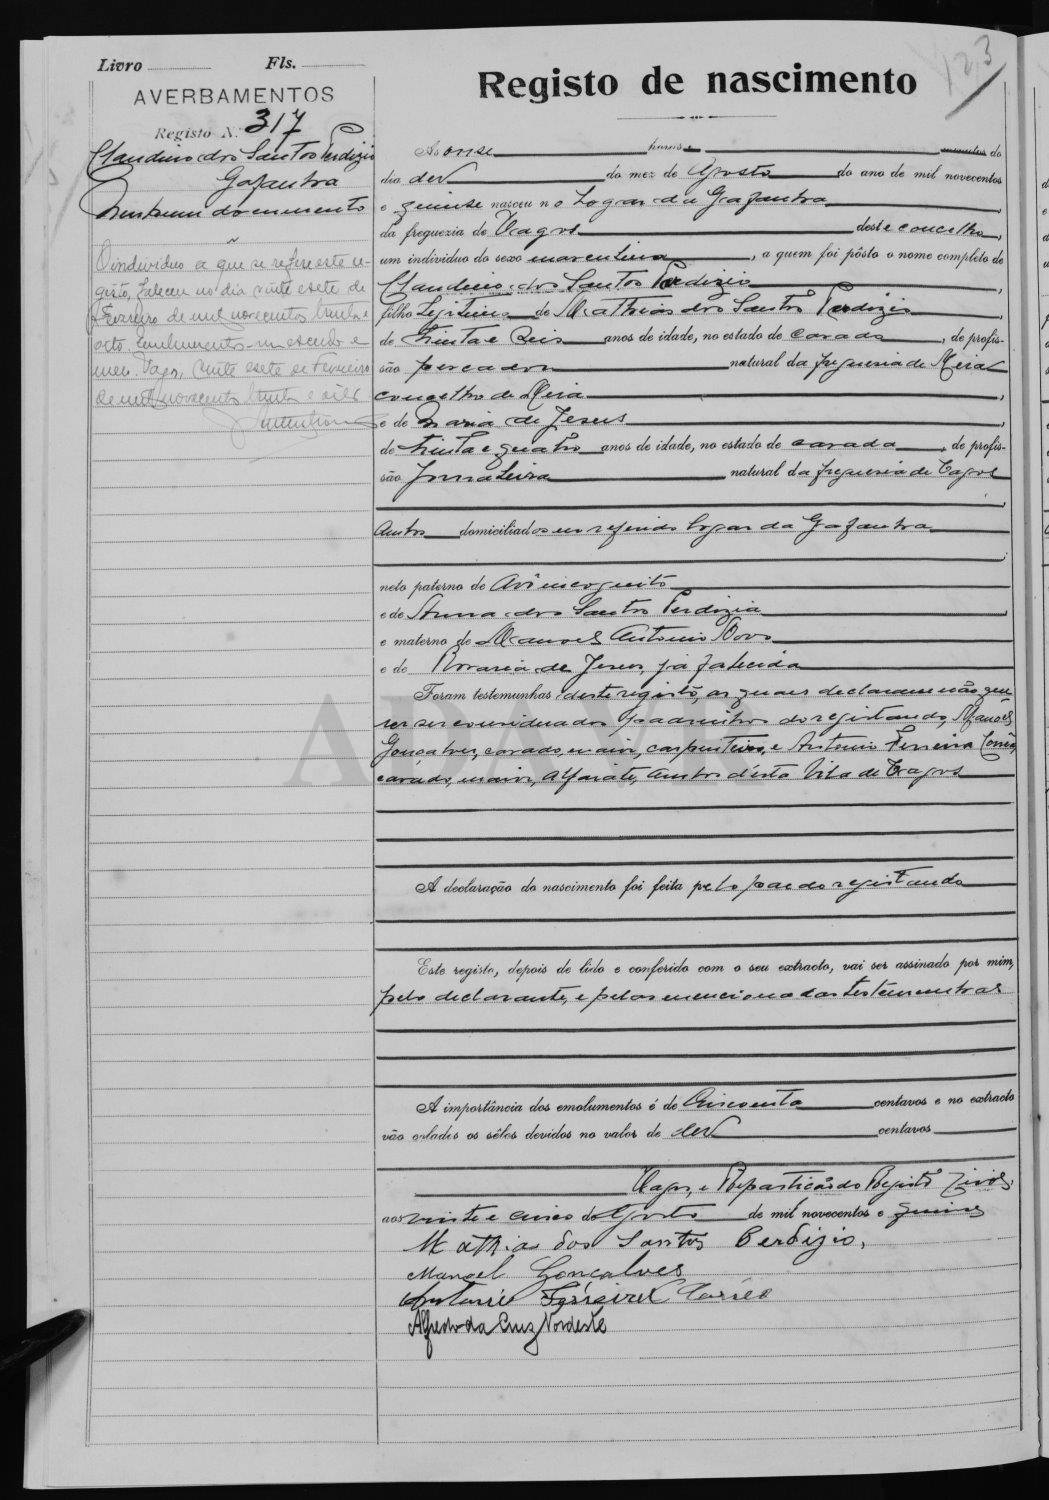 123
Livro Fls.
AVERBAMENTOS
Registo N.º 317
Claudino dos Santos Perdizio
Gafanha
Nenhum documento
O individuo a que se refere este re-
gisto, faleceu no dia vinte e sete de
Fevereiro de mil novecentos trinta e
oito. Emolumentos um escudo e
meio. Vagos, vinte e sete de Fevereiro
de mil novecentos trinta e oito
Registo de nascimento
Às onse horas e minutos do
dia dez do mez de Agosto do ano de mil novecentos
e quinse nasceu no Logar da Gafanha,
da freguezia de Vagos deste concelho,
um individuo do sexo masculino, a quem foi pôsto o nome completo de
Claudino dos Santos Perdizio,
filho Legitimo de Mathias dos Santos Perdizio,
de trinta e seis anos de idade, no estado de casado, de profis-
são pescador natural da freguesia de Mira
concelho de Mira,
e de Maria de Jesus,
de trinta e quatro anos de idade, no estado de casada, de profis-
são Jornaleira natural da freguesia de Vagos,
Ambos domiciliados no referido logar da Gafanha
neto paterno de Avô incognito
e de Anna dos Santos Perdizia,
e materno de Manoel Antonio Novo
e de Rosaria de Jesus, já falecida
Foram testemunhas deste registo, as quaes declararam não que-
rer ser considerados padrinhos do registando, Manoel
Gonçalves, casado, maior, carpinteiro, e Antonio Ferreira Corrêa,
casado, maior, Alfaiate, Ambos d'esta Vila de Vagos
ADAVR
A declaração do nascimento foi feita pelo pae do registando
Este registo, depois de lido e conferido com o seu extracto, vai ser assinado por mim,
pelo declarante, e pelas mencionadas testemunhas
A importância dos emolumentos é de Cincoenta centavos e no extracto
vão colados os sêlos devidos no valor de dez centavos
Vagos, e Repartição do Registo Civil,
aos vinte e cinco de Agosto de mil novecentos e quinse
Mathias dos Santos Perdizio,
Manoel Gonçalves
Antonio Ferreira Corrêa
Alfredo da Cruz Nordeste